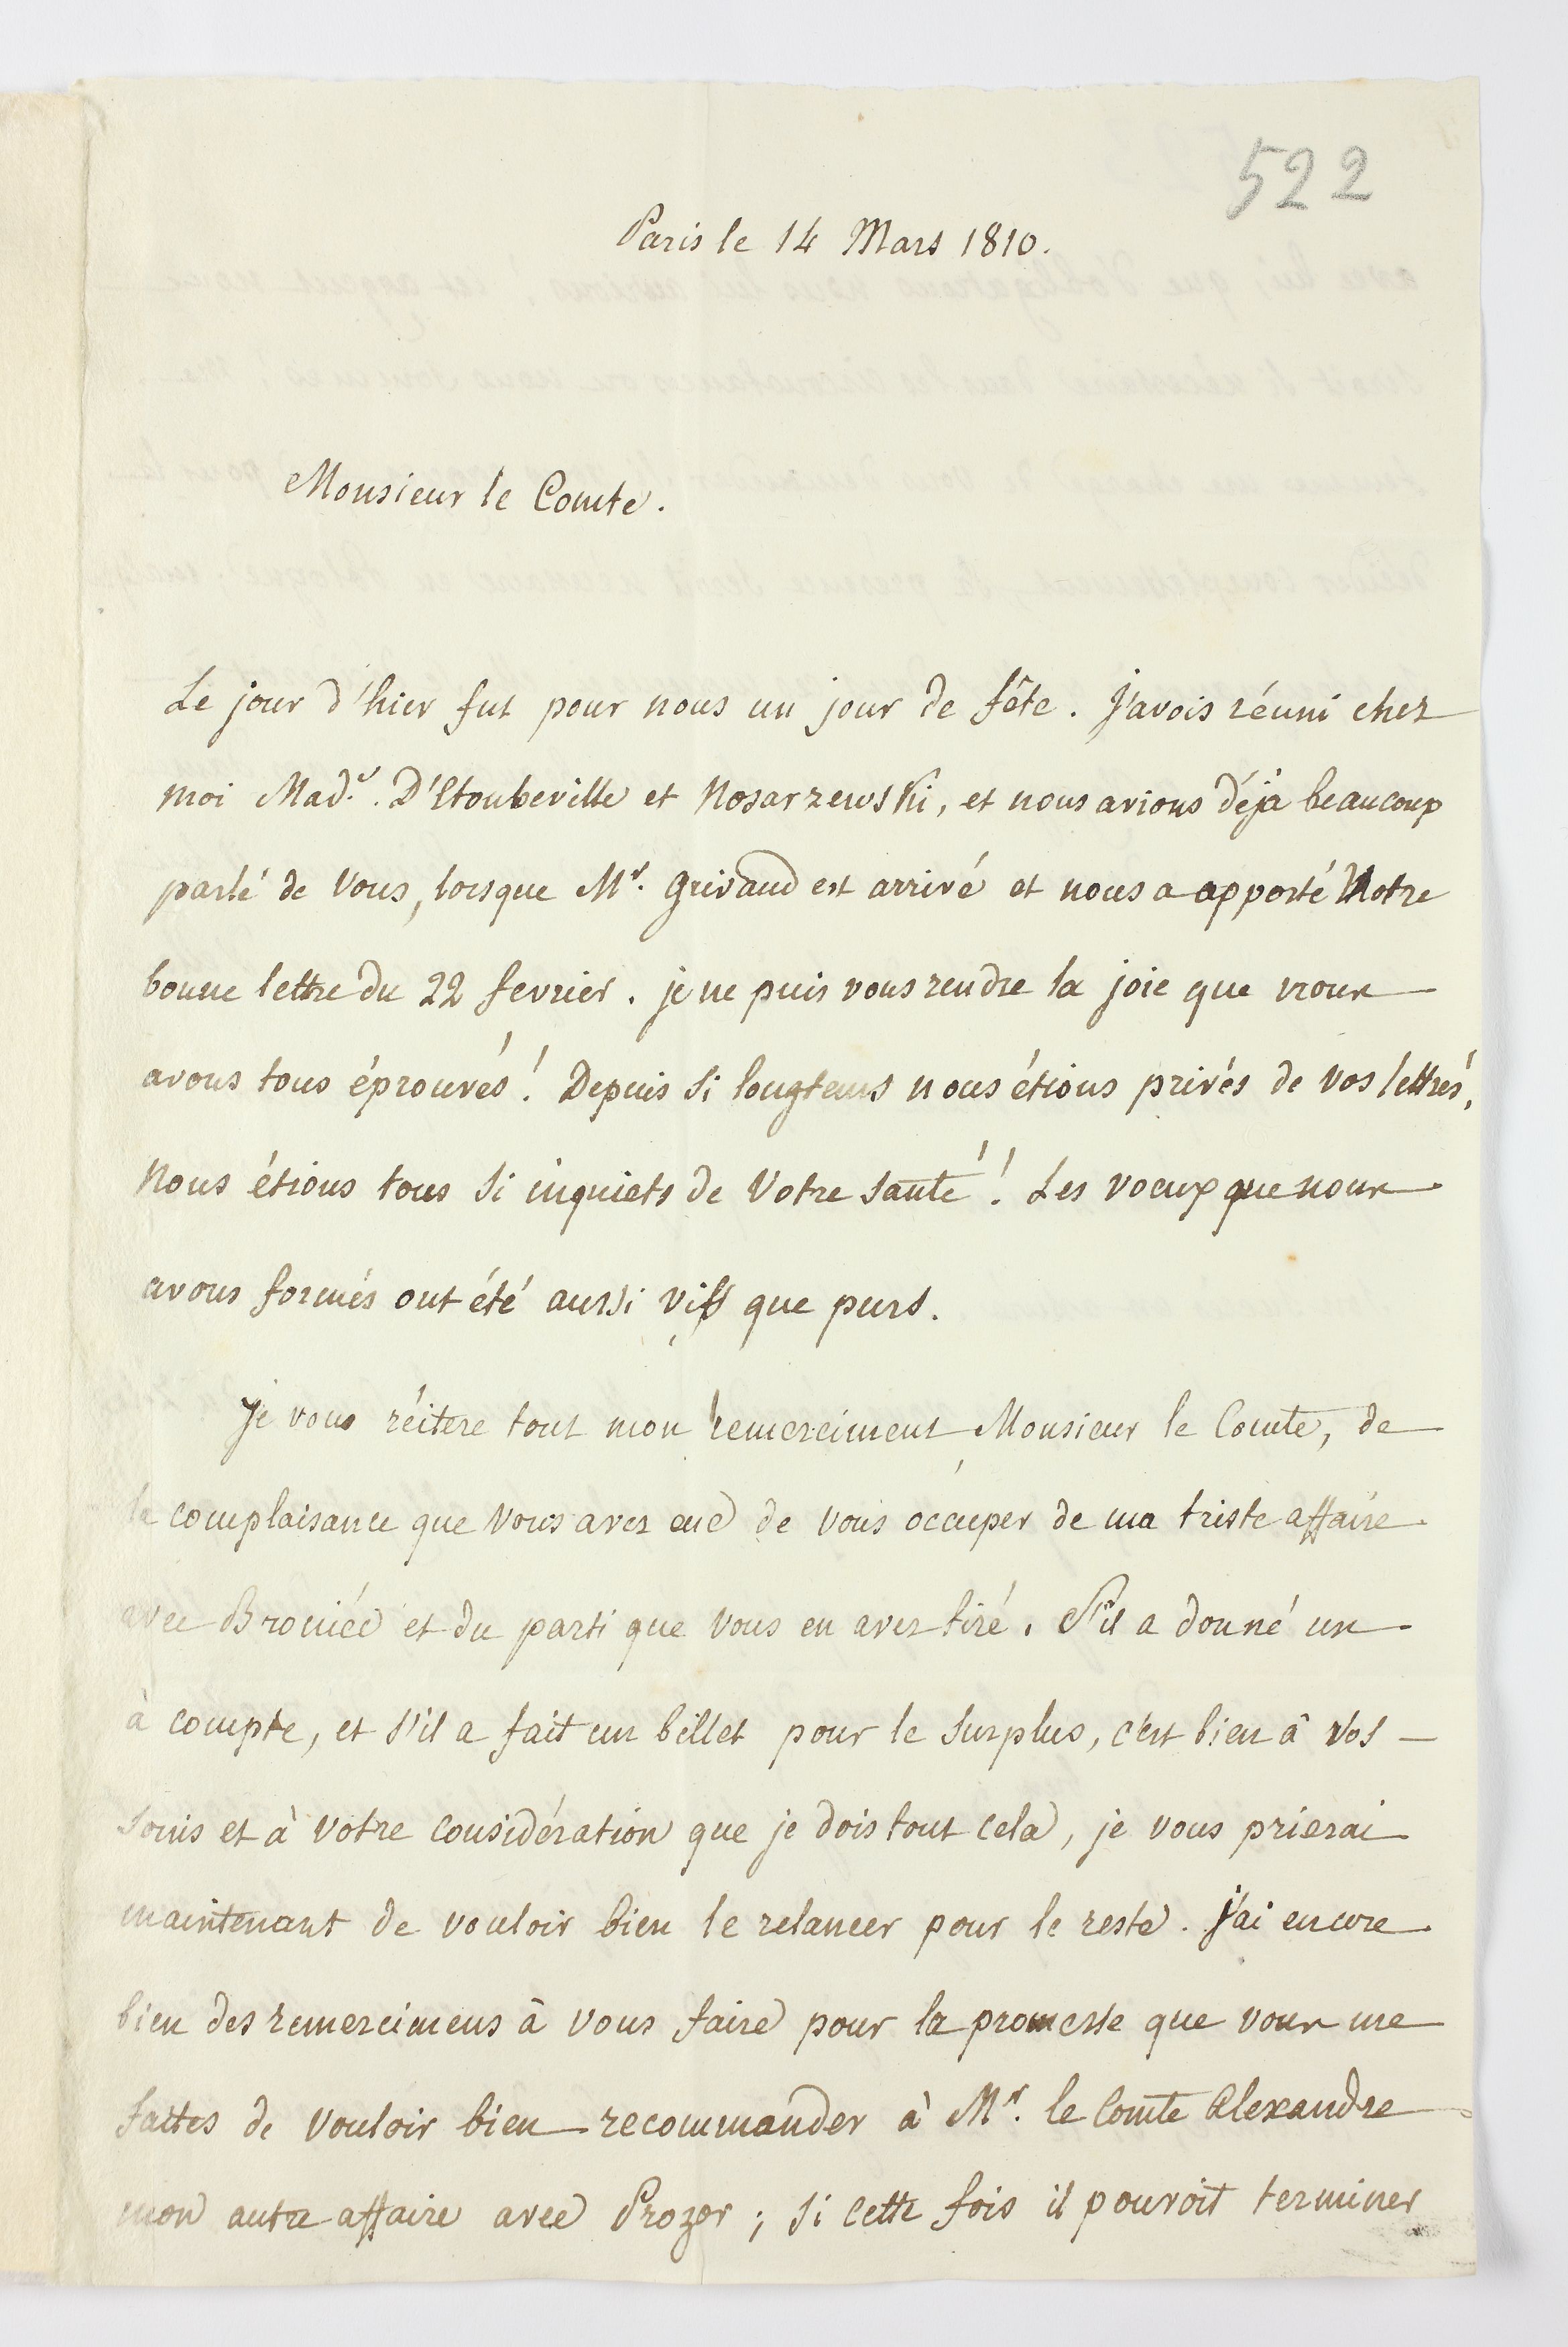 522
Paris le 14 Mars 1810.
Monsieur le Comte.
Le jour d'hier fut pour nous un jour de fête. J'avois réuni chez
moi Mad.e. D'Etoubeville et Nosarzewski, et nous avions déjà beaucoup
parlé de Vous, lorsque Mr. Grivaud est arrivé et nous a apporté Votre
bonne lettre du 22 fevrier. je ne puis vous rendre la joie que nous
avons tous éprouvés! Depuis si longtems nous étions privés de vos lettrés,
Nous étions tous si inquiets de Votre santé! Les voeux que nous
avons formés ont été aussi vifs que purs.
Je vous réitere tout mon remerciment Monsieur le Comte, de
la complaisance que Vous avez eue de vous occuper de ma triste affaire
avec et du parti que Vous en avez tiré. S'il a donné un
à compte, et s'il a fait un billet pour le surplus, c'est bien à vos
soins et à votre considération que je dois tout cela, je vous prierai
maintenant de vouloir bien le relancer pour le reste. J'ai encore
bien des remercimens à vous faire pour la promesse que vous me
faites de vouloir bien recommander à Mr. le Comte Alexandre
mon autre affaire avec Prozor; si cette fois il pouvoit terminer